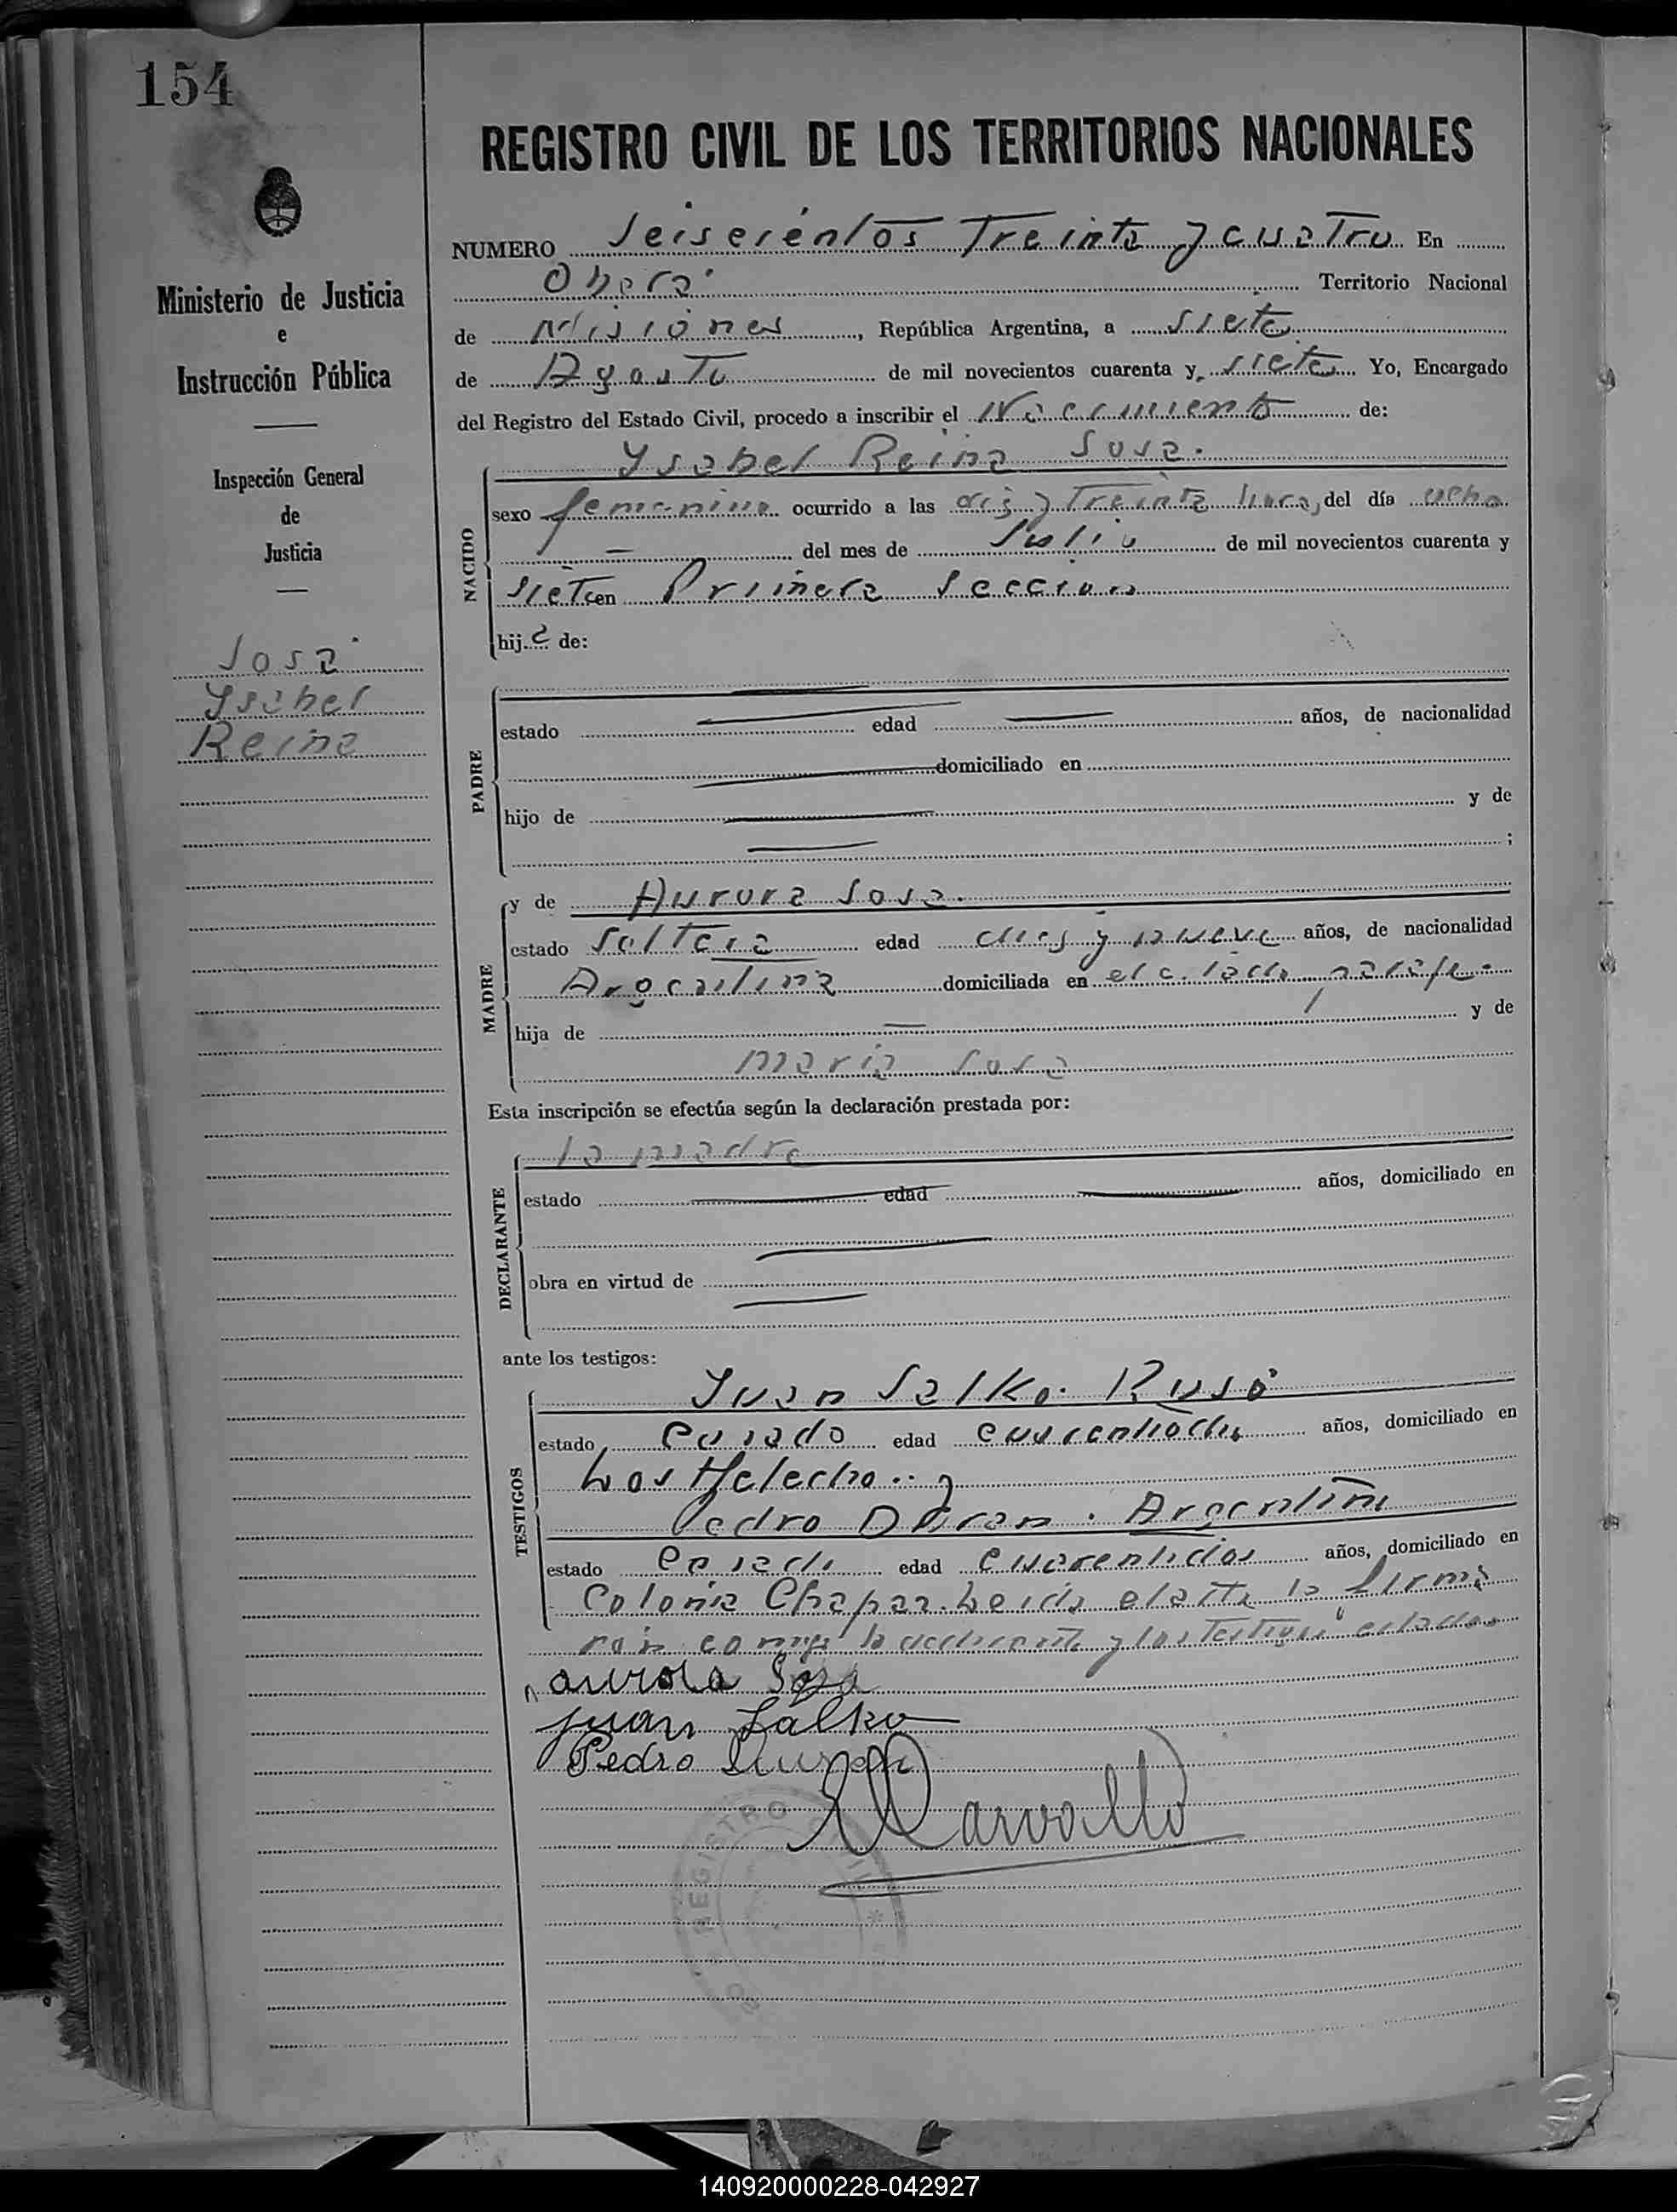 154
REGISTRO CIVIL DE LOS TERRITORIOS NACIONALES
Ministerio de Justicia
e
Instrucción Pública
Inspección General
de
Justicia
Sosa
Ysabel
Reina
NUMERO Seiscientos Treinta y cuatro En
Oberá Territorio Nacional
de Misiones, República Argentina, a siete
de Agosto de mil novecientos cuarenta y siete Yo, Encargado
del Registro del Estado Civil, procedo a inscribir el Nacimiento de:
Ysabel Reina Sosa.
NACIDO
sexo femenino ocurrido a las y Treinta horas, del día ocho
del mes de Julio de mil novecientos cuarenta y
siete en Primera Seccion
hija de:
PADRE
estado edad años, de nacionalidad
domiciliado en
hijo de y de
;
MADRE
y de Aurora Sosa.
estado Soltera edad dies y nueve años, de nacionalidad
Argentina domiciliada en el citado paraje.
hija de y de
Maria Sosa
Esta inscripción se efectúa según la declaración prestada por:
DECLARANTE
la madre
estado edad años, domiciliado en
obra en virtud de
ante los testigos:
TESTIGOS
Juan Salko. Ruso
estado Casado edad años, domiciliado en
Los Helechos y
Pedro Duran. Argentino
estado Casado edad años, domiciliado en
Colonia Chapar. Leida el acta la firma
ron conmigo la declarante y los Testigos citados
aurora Sosa
Juan Salko
Pedro Duran
Carvallo
REGISTRO
140920000228-042927